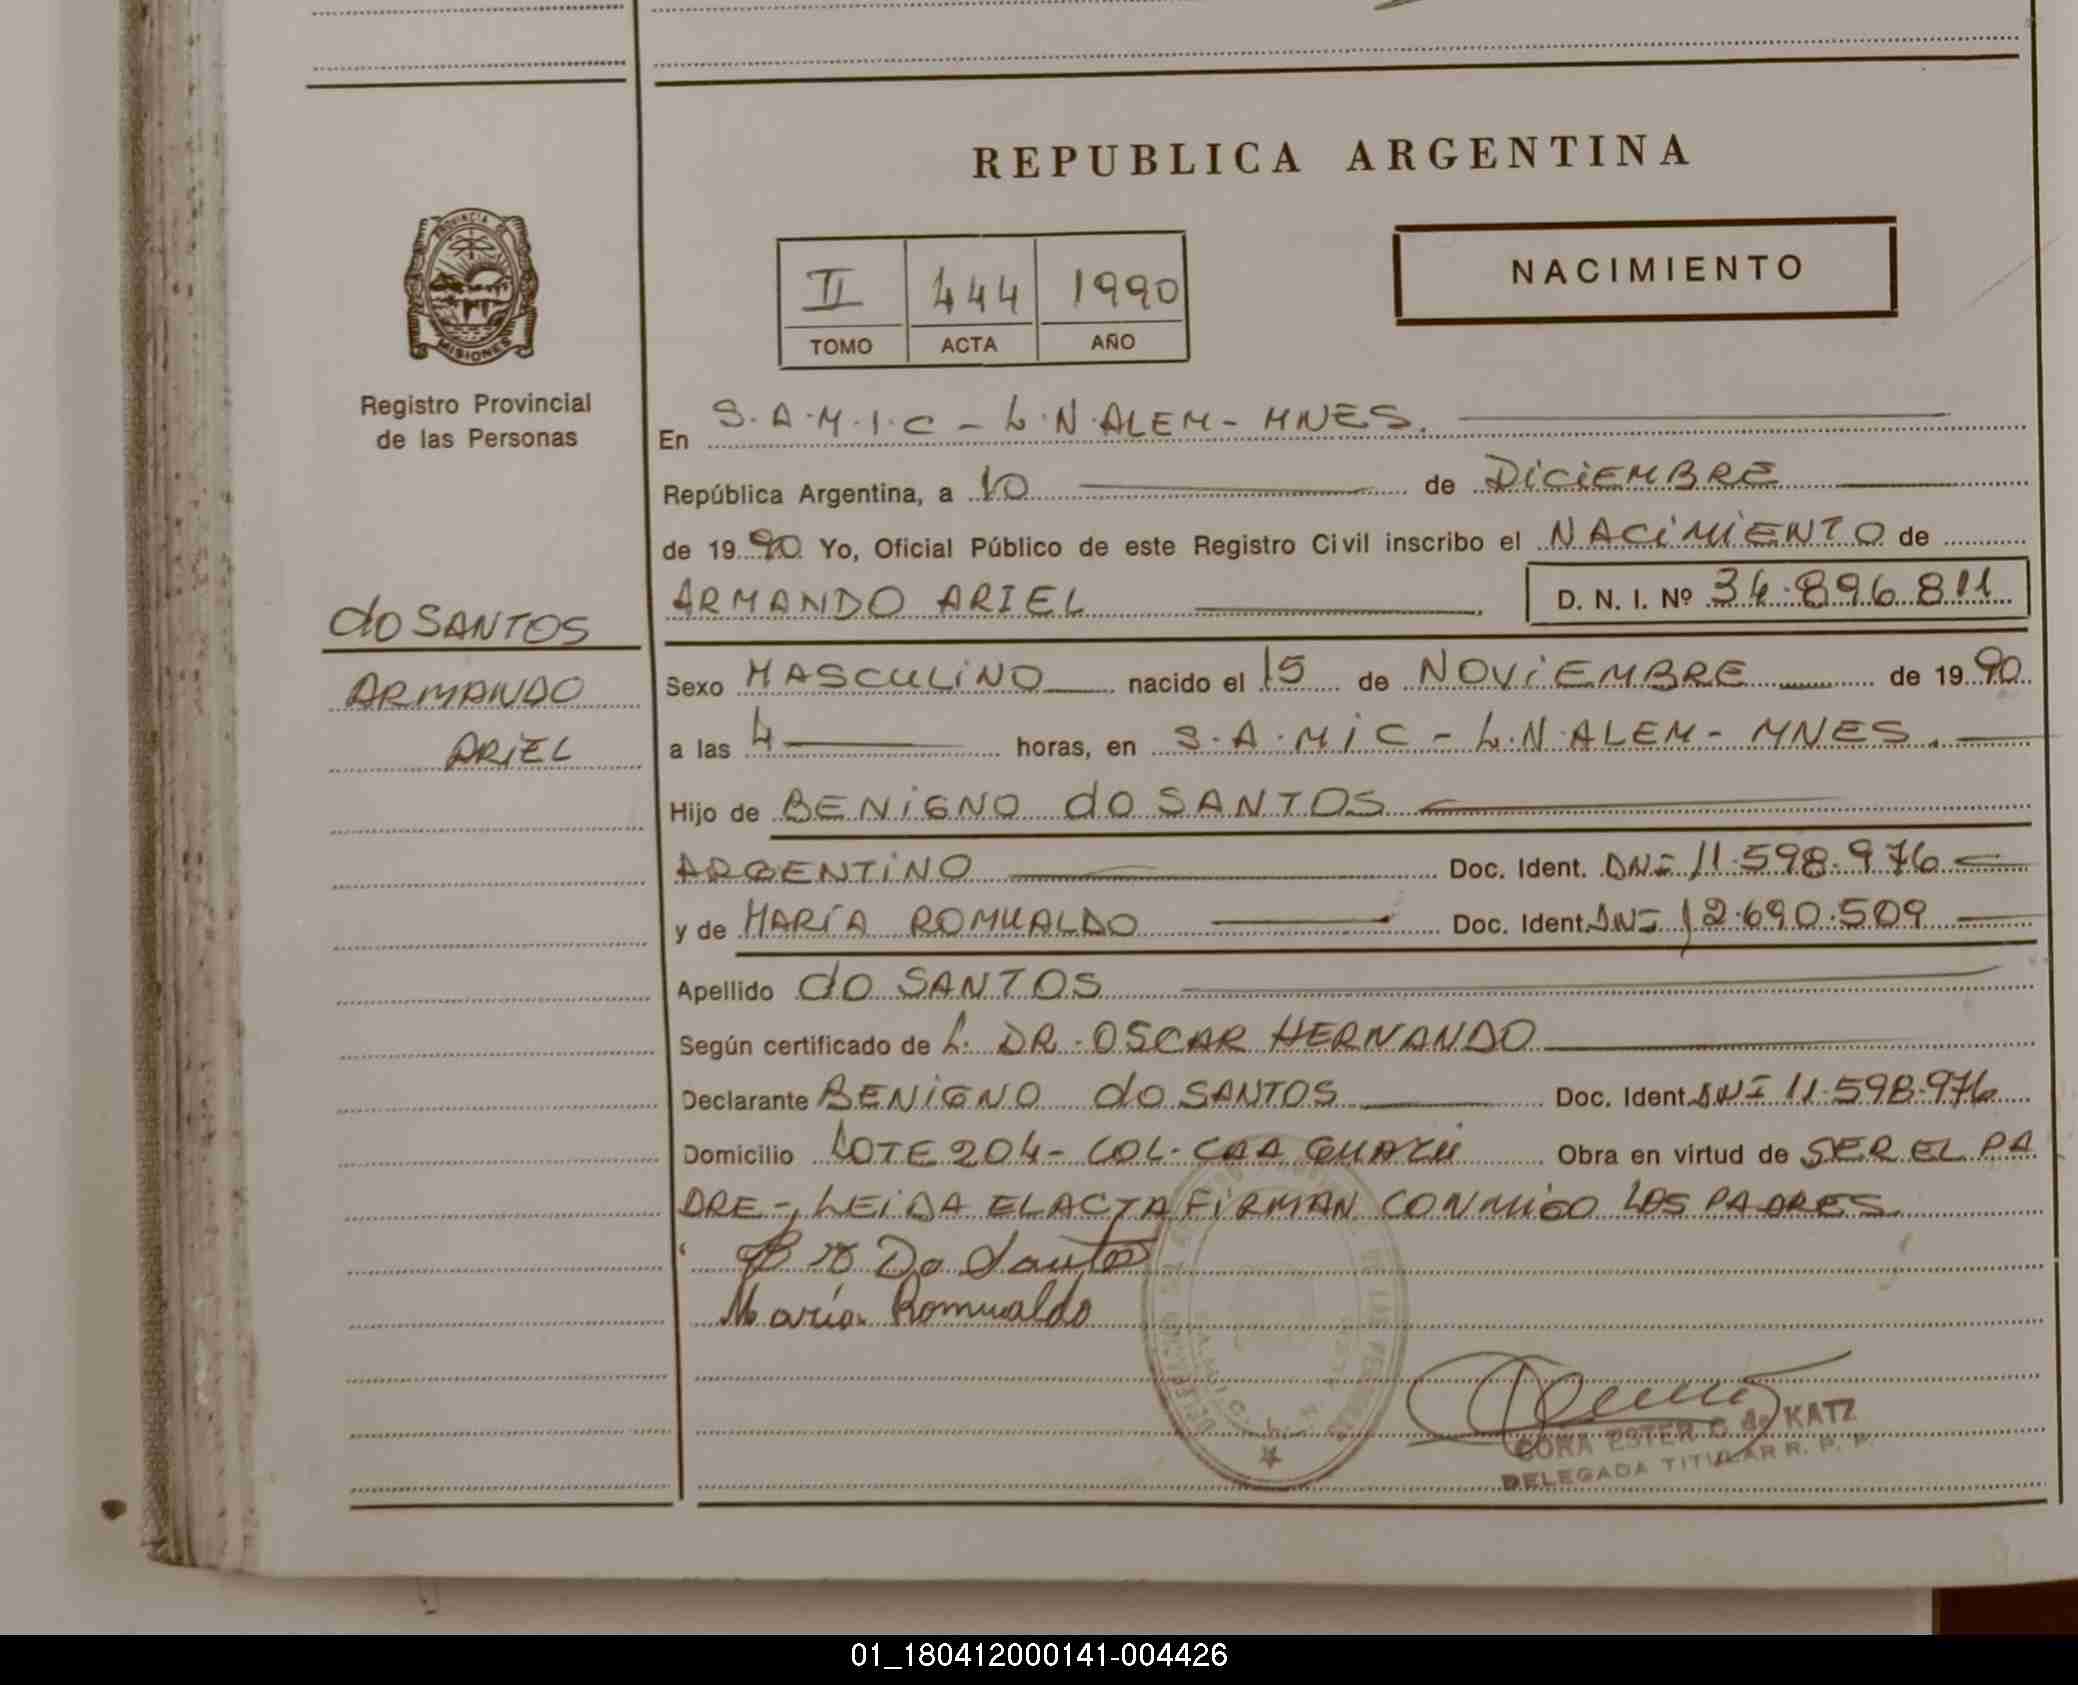 REPUBLICA ARGENTINA
PROVINCIA
MISIONES
Registro Provincial
de las Personas
II 444 1990
TOMO ACTA AÑO
NACIMIENTO
En S.A.M.I.C - L.N.ALEM - MNES.
República Argentina, a 10 de DICIEMBRE
de 1990 Yo, Oficial Público de este Registro Civil inscribo el NACIMIENTO de
ARMANDO ARIEL D. N. I. Nº 34.896.811
do SANTOS
ARMANDO
ARIEL
Sexo MASCULINO nacido el 15 de NOVIEMBRE de 1990
a las 4 horas, en S.A.MIC - L.N.ALEM - MNES.
Hijo de BENIGNO do SANTOS
ARGENTINO Doc. Ident. DNI 11.598.976
y de MARÍA ROMUALDO Doc. Ident. DNI 12.690.509
Apellido do SANTOS
Según certificado de L. DR. OSCAR HERNANDO
Declarante BENIGNO do SANTOS Doc. Ident. DNI 11.598.976
Domicilio LOTE 204 - COL. CAA GUAZÚ Obra en virtud de SER EL PA
DRE -, LEIDA EL ACTA FIRMAN CONMIGO LOS PADRES
Do Santos
María Romualdo
CORA ESTER C. de KATZ
DELEGADA TITULAR R. P. P.
01_180412000141-004426